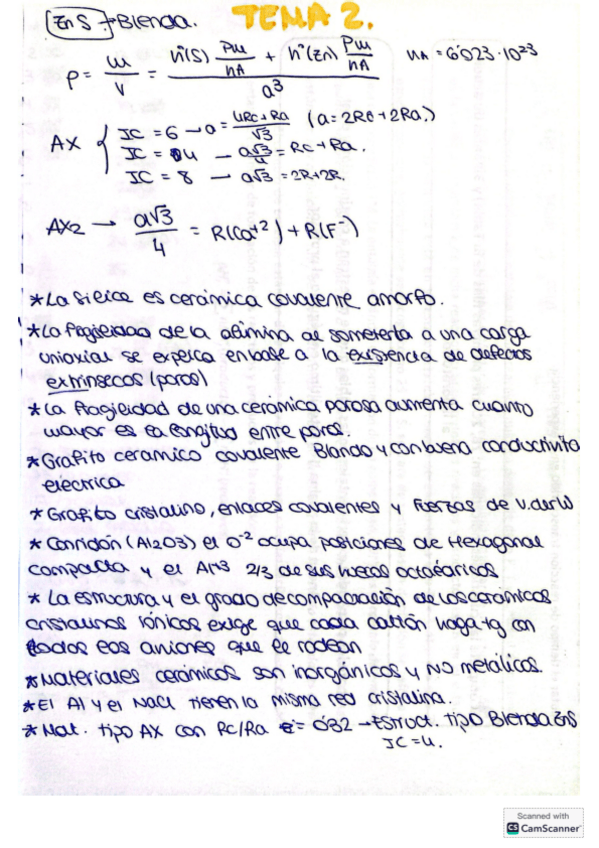 ZnS → Blenda. TEMA 2.
ρ = m/V = (nº(S) Pm/nA + nº(Zn) Pm/nA) / a³ nA = 6'023·10²³
AX { IC = 6 → a = (4Rc+Ra)/√3 (a = 2Rc + 2Ra.)
IC = 4 → a√3/4 = Rc + Ra.
IC = 8 → a√3 = 2R+2R.
AX2 → a√3/4 = R(Ca+2) + R(F-)
* La silice es cerámica covalente amorfo.
* La fragilidad de la alúmina al someterla a una carga
uniaxial se explica en base a la existencia de defectos
extrínsecos (poros)
* La fragilidad de una cerámica porosa aumenta cuanto
mayor es la longitud entre poros.
* Grafito ceramico covalente Blando y con buena conductivita
eléctrica
* Grafito cristalino, enlaces covalentes y Fuerzas de V.derW
* Corindón (Al2O3) el O-2 ocupa posiciones de Hexagonal
compacta y el Al+3 2/3 de sus huecos octaédricos
* La estructura y el grado de compactación de los cerámicos
cristalinos iónicos exige que cada catión haga tg con
todos los aniones que le rodean
* Materiales cerámicos son inorgánicos y NO metálicos.
* El Al y el NaCl tienen la misma red cristalina.
* Mat. tipo AX con Rc/Ra = 0'32 → Estruct. tipo Blenda ZnS
IC = 4.
Scanned with
CS CamScanner